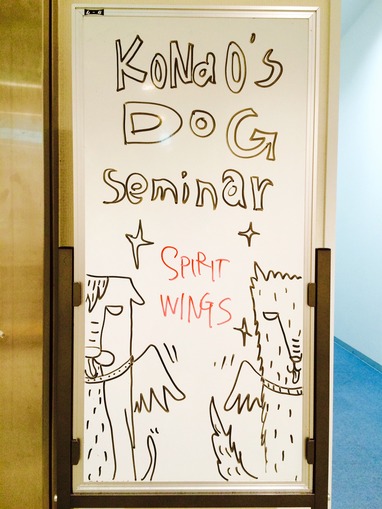 KoNdO's
DoG
seminar
SPIRIT
WINGS